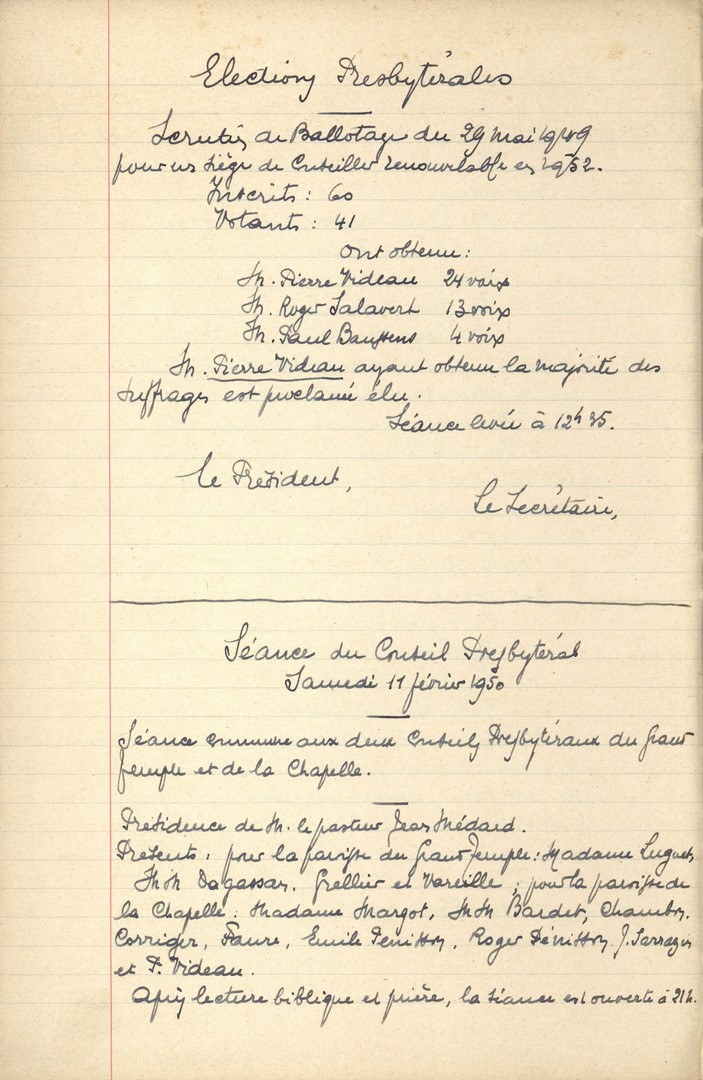 Elections Presbytérales
Scrutin de Ballotage du 29 mai 1949
pour un siège de Conseiller renouvelable en 1952.
Inscrits : 60
Votants : 41
ont obtenu :
M. Pierre Videau 24 voix
M. Roger Salavert 13 voix
M. Paul 4 voix
M. Pierre Videau ayant obtenu la majorité des
suffrages est proclamé élu.
Séance levée à 12h 35.
Le Président,
Le Secrétaire,
Séance du Conseil Presbytéral
Samedi 11 février 1950
Séance commune aux deux Conseils Presbytéraux du Grand
Temple et de la Chapelle.
Présidence de M. le pasteur Jean Médard.
Présents : pour la paroisse du Grand Temple : Madame
MM Dagassan, Grellier et Vareille ; pour la paroisse de
la Chapelle : Madame Margot, MM Bardet, Chambon,
Corriger, Faure, Emile Pénisson, Roger Pénisson, J. Sarrazin
et P. Videau.
Après lecture biblique et prière, la séance est ouverte à 21h.